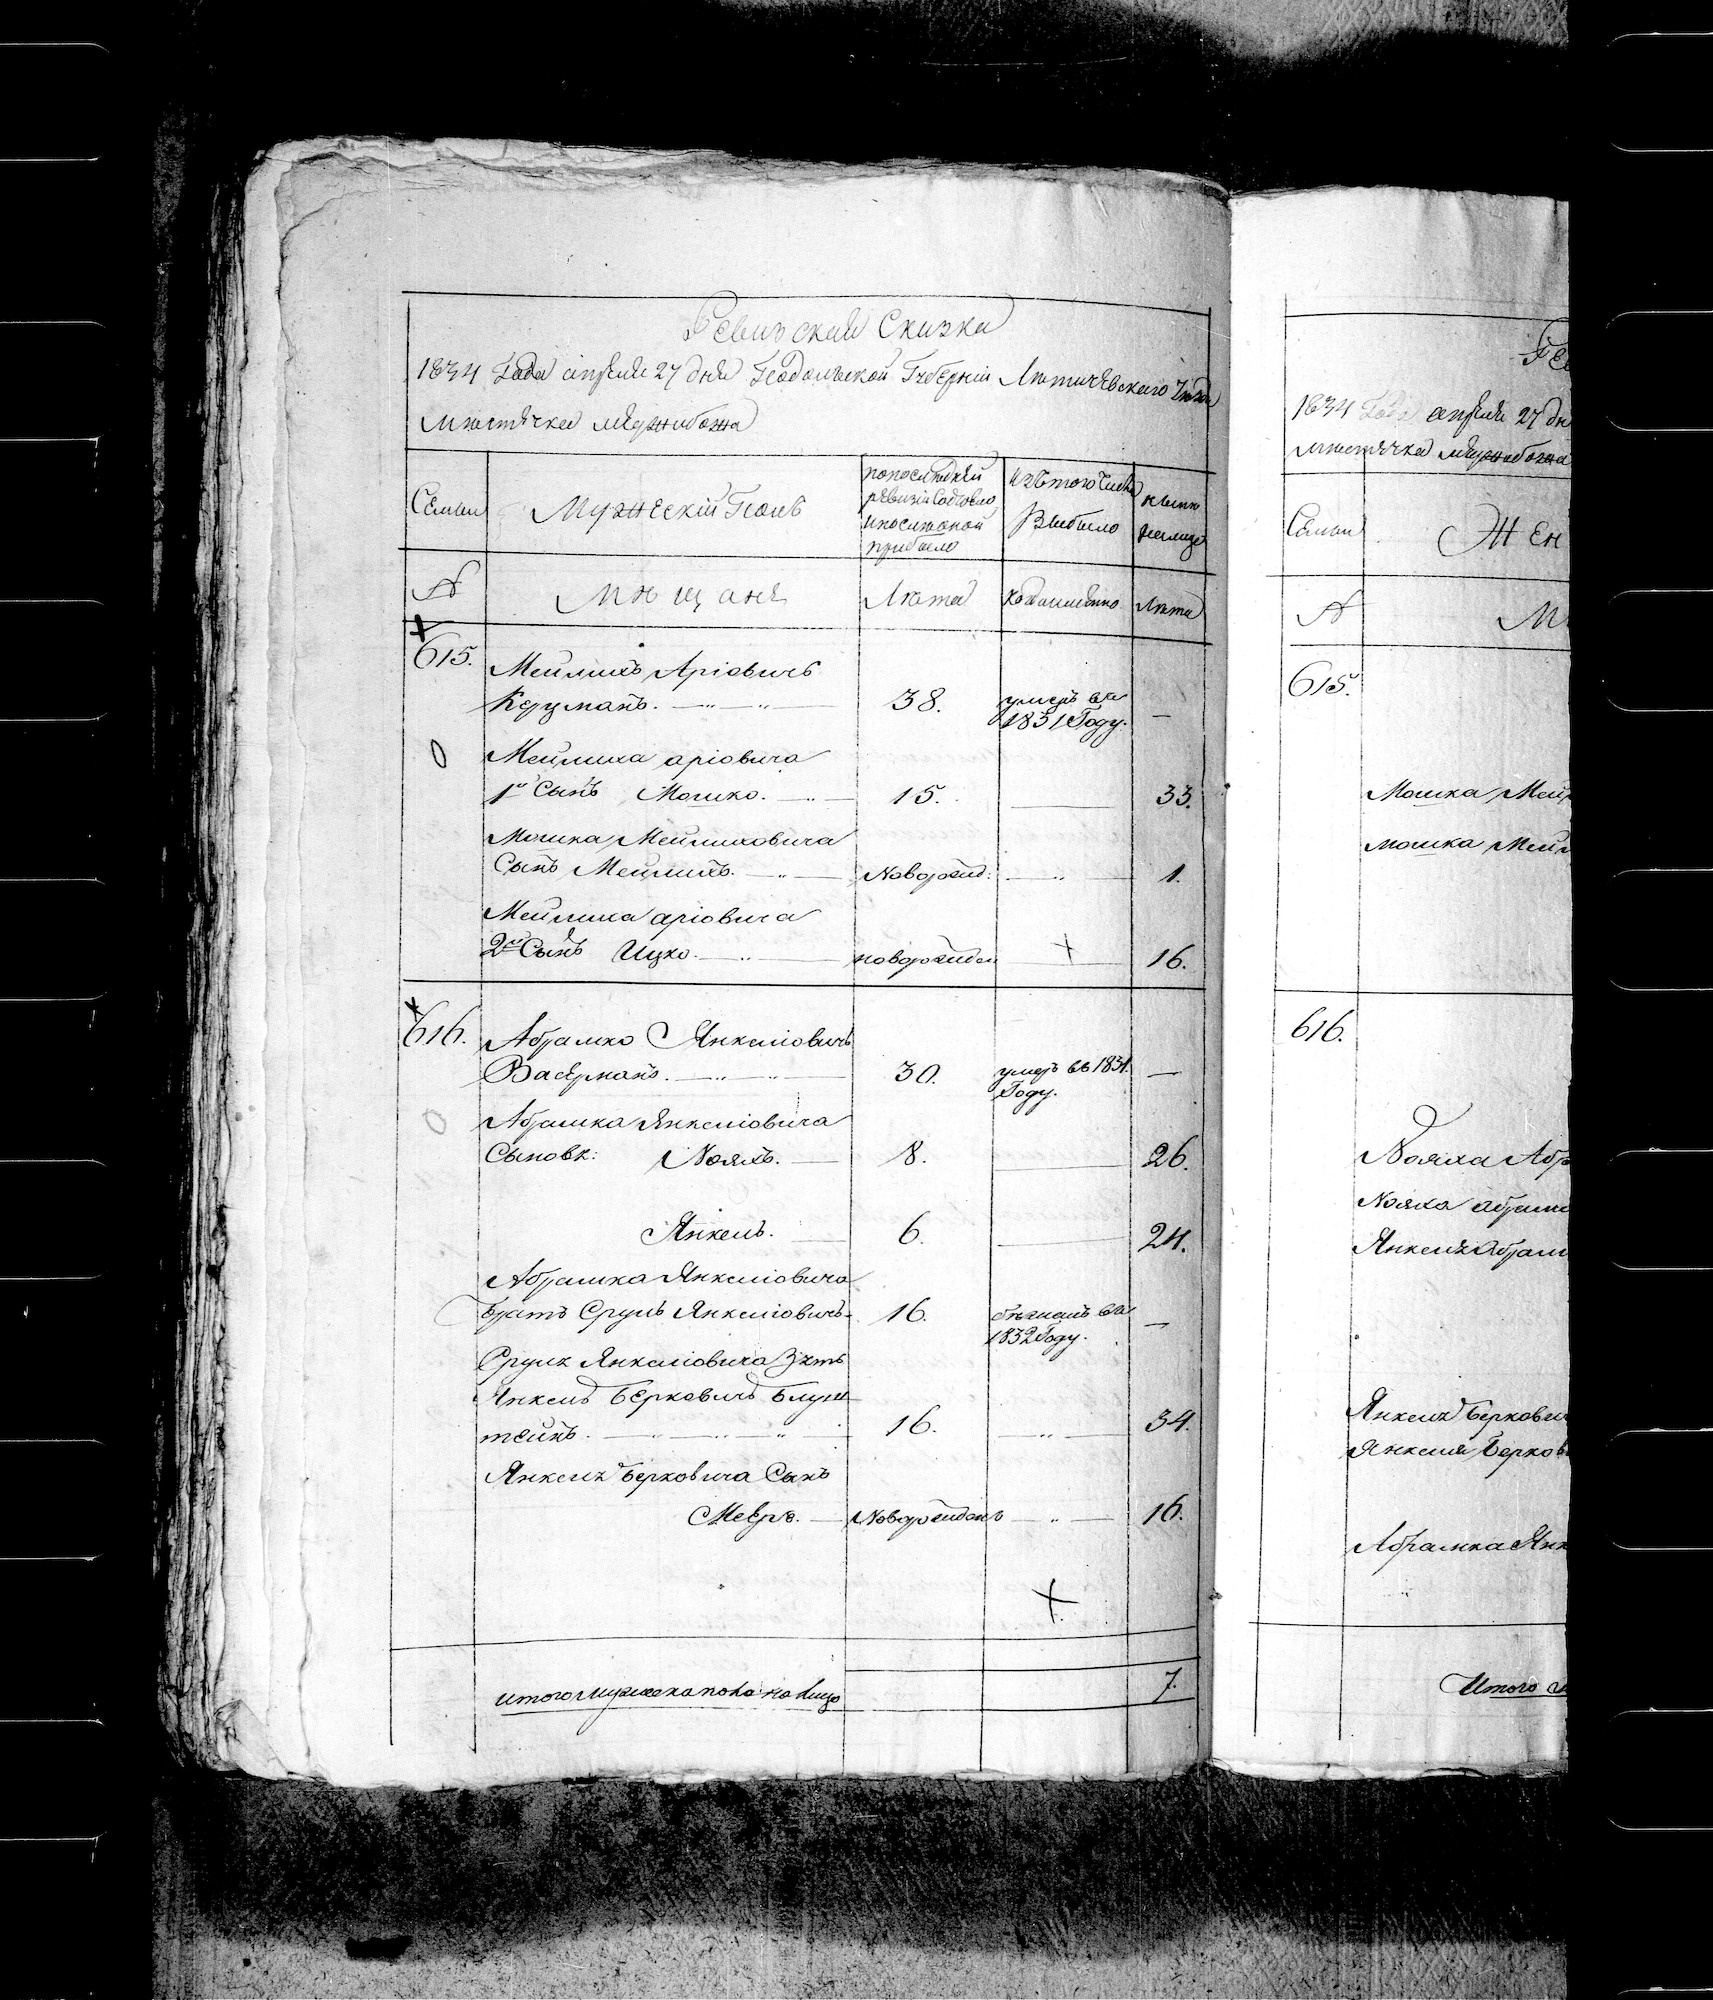 Ревизская Сказка
1834 Года апреля 27 дня Подольской Губернiи Лѣтичевскаго Уѣзда
мѣстечка меджибожа
Семьи
Мужескiй Полъ
попослѣдней
ревизiи состояло
и послѣ оной
прибыло
Изъ того числа
Выбыло
нынѣ
налицо
№
мѣщане
Лѣта
Когда именно
Лѣта
615.
Мейлихъ Арiовичъ
38.
умеръ въ
1831 Году.
Мейлиха арiовича
1й Сынъ Мошко.
15.
33.
Мошка Мейлиховича
Сынъ Мейлихъ.
Новорожд:
1.
Мейлиха арiовича
2й Сынъ Ицко.
новорожден
16.
616.
Абрамко Янкелiовичъ
Васерманъ.
30.
умеръ въ 1831.
Году.
Абрамка Янкелiовича
Сыновья: Нояхъ.
8.
26.
Янкель.
6.
24.
Абрамка Янкелiовича
братъ Сруль Янкелiовичъ
16.
бѣжалъ въ
1832 Году.
Сруля Янкелiовича Зять
Янкель Берковичъ Блуш
тейнъ.
16.
34.
Янкеля Берковича Сынъ
Мееръ.
Новорожденъ
16.
итого мужеска пола на лицо
7.
1834 Года апреля 27 дн
мѣстечка меджибожа
Семьи
Жен
№
615.
Мошка Мей
мошка Мейл
616.
Нояха Абр
Нояха абрам
Янкеля Абрам
Янкеля Беркович
Янкеля Берков
Абрамка Янк
Итого